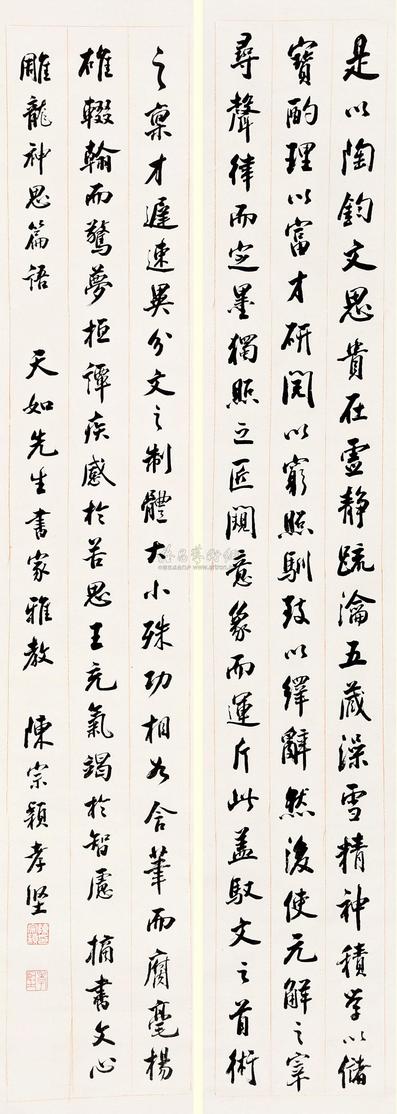 是以陶鈞文思貴在虛靜疏瀹五藏澡雪精神積學以儲
寶酌理以富才研閱以窮照馴致以繹辭然後使元解之宰
尋聲律而定墨獨照之匠闚意象而運斤此蓋馭文之首術
之稟才遲速異分文之制體大小殊功相如含筆而腐毫楊
雄輟翰而驚夢桓譚疾感於苦思王充氣竭於智慮 摘書文心
雕龍神思篇語 天如先生書家雅教 陳宗穎孝堅